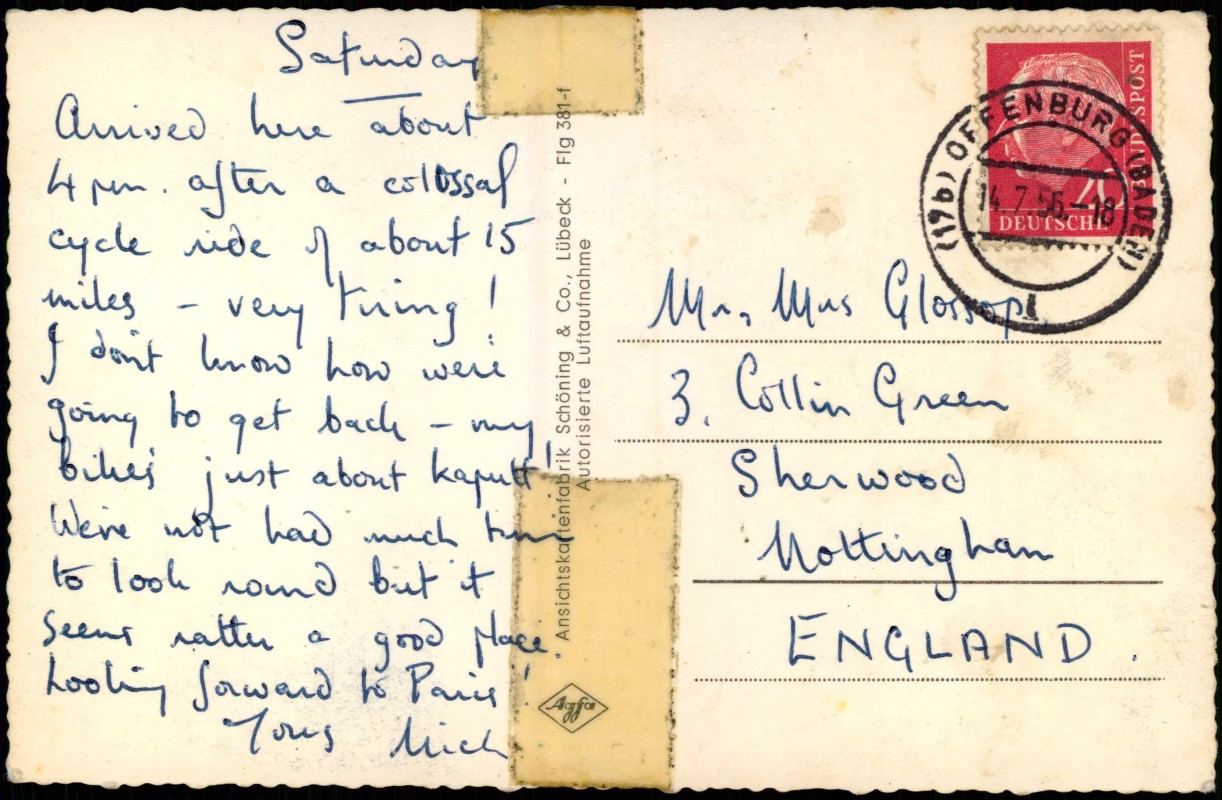 Saturday
Arrived here about
4 pm. after a colossal
cycle ride of about 15
miles – very tiring !
I don't know how we're
going to get back – my
bike's just about kaputt!
We've not had much time
to look round but it
seems rather a good place.
Looking forward to Paris!
Yours Mick
Ansichtskartenfabrik Schöning & Co., Lübeck - Flg 381-f
Autorisierte Luftaufnahme
Agfa
DEUTSCHE
BUNDESPOST
20
(17b) OFFENBURG (BADEN)
14.7.56-18
1
Mr, Mrs Glossop,
3. Collin Green
Sherwood
Nottingham
ENGLAND.